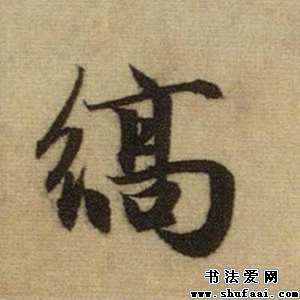 縞
书法爱网
www.shufaai.com